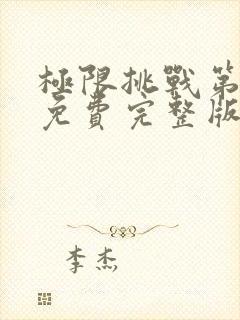 極限挑戰第
免費完整版
李杰